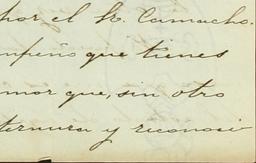 por el Sr. Camacho.
mpeño que tienes
mor que, sin otro
ternura y reconoci